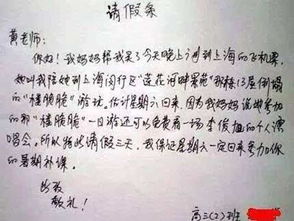 请假条
黄老师:
你好!我妈妈帮我买了今天晚上到上海的飞机票,
她叫我陪她到上海闵行区"莲花河畔景苑"那栋13层倒塌
的"楼脆脆"游玩。估计星期六回来,因为我妈妈说她参加
的和"楼脆脆"一日游还可以免费看一场李俊旭的个人演
唱会。所以特此请假三天,我保证星期六一定回来参加你
的暑期补课。
此致
敬礼!
高三(2)班